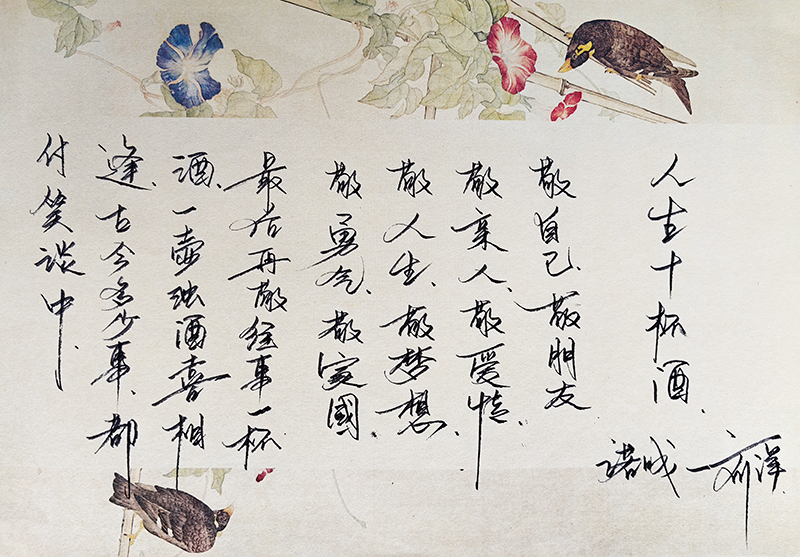 人生十杯酒、
诸城
敬自己、敬朋友
敬亲人、敬爱情、
敬人生、敬梦想、
敬勇气、敬家國、
最后再敬往事一杯
酒、一壶浊酒喜相
逢、古今多少事、都
付笑谈中、